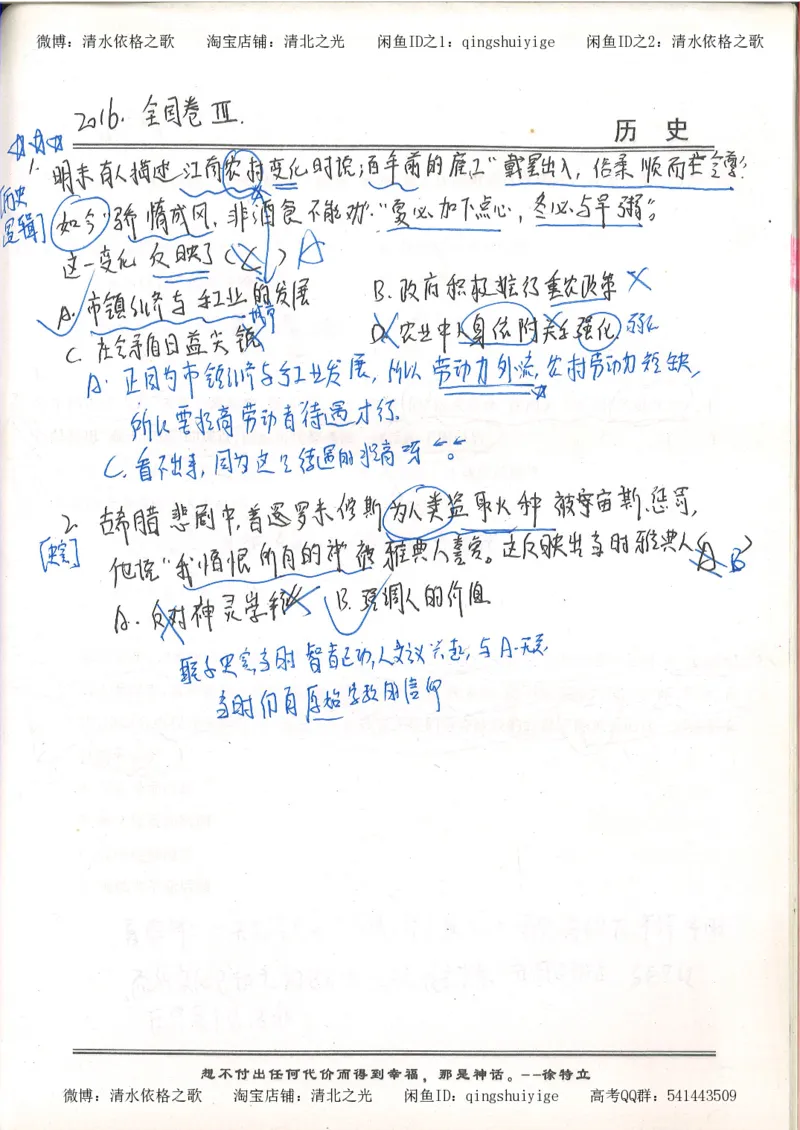 微博：清水依格之歌 淘宝店铺：清北之光 闲鱼ID之1：qingshuiyige 闲鱼ID之2：清水依格之歌
2016. 全国卷Ⅲ.
历 史
☆☆☆
1. 明末有人描述江南农村变化时说；百年前的雇工"戴星出入，俗柔顺而主令尊；
[历史逻辑]
如今"骄惰成风，非酒食不能劝""夏必加下点心，冬必与早粥"。
这一变化反映了( ) A
A. 市镇经济与手工业的发展 B. 政府积极推行重农政策 ×
C. 在令矛盾日益尖锐 D. 农业中人身依附关系强化. 弱化
A. 正因为市镇经济与手工业发展，所以劳动力外流，农村劳动力短缺，
所以要提高劳动者待遇才行.
C. 看不出来，因为这是待遇的提高呀
2. 古希腊悲剧中，普遇罗米修斯为人类盗取火种被宇宙斯.惩罚，
[史实]
他说"我憎恨所有的神"被雅典人喜爱。这反映出当时雅典人(A) B
A. 反对神灵崇拜 B. 强调人的价值
联系史实，当时智者运动，人文主义兴起，与A.无关
当时仍有原始宗教的信仰
想不付出任何代价而得到幸福，那是神话。--徐特立
微博：清水依格之歌 淘宝店铺：清北之光 闲鱼ID：qingshuiyige 高考QQ群：541443509